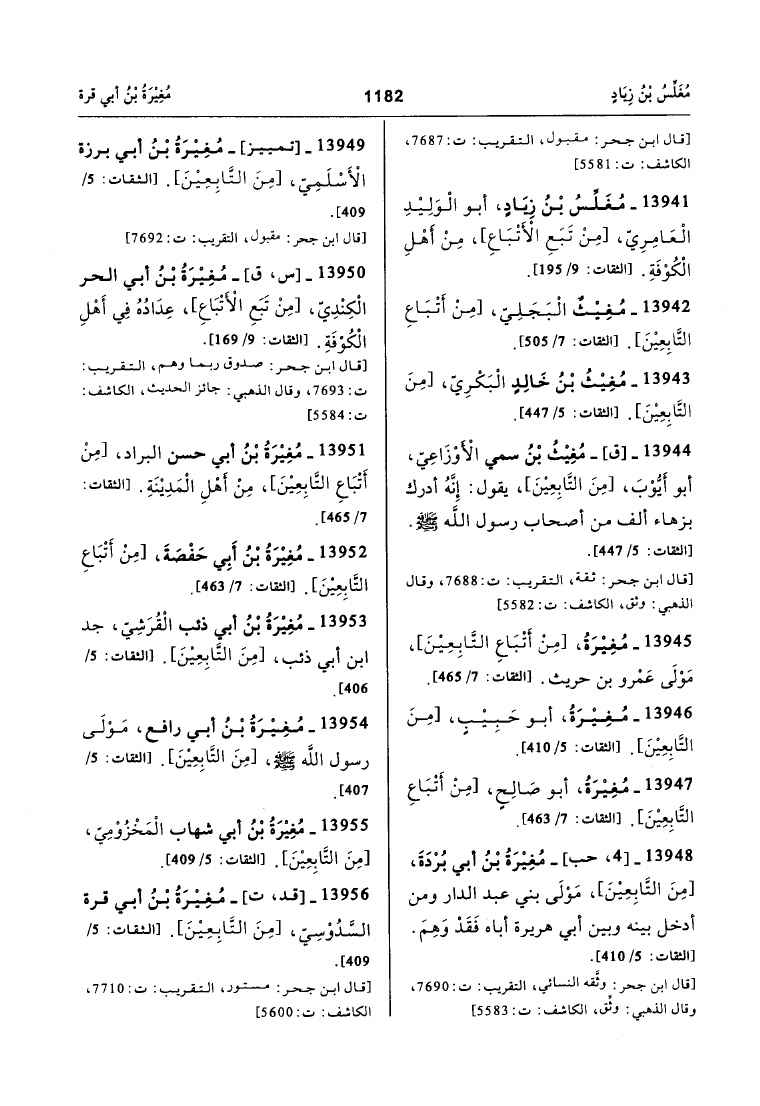 مُغَلِّسُ بْنُ زِيَادٍ
1182
مُغِيْرَةُ بْنُ أبي قرة
[قال ابن حجر: مقبول، التقريب: ت:7687،
الكاشف: ت:5581]
13941 ـ مُغَلِّسُ بْنُ زِيَادٍ، أبو الْوَلِيْدِ
الْعَامِرِيّ، [مِنْ تَبَعِ الْأَتْبَاعِ]، مِنْ أَهْلِ
الْكُوْفَةِ. [الثقات: 9/ 195].
13942 ـ مُغِيْثٌ الْبَجَلِيّ، [مِنْ أَتْبَاعِ
التَّابِعِيْنَ]. [الثقات: 7/ 505].
13943 ـ مُغِيْثُ بْنُ خَالِدٍ الْبَكْرِيّ، [مِنَ
التَّابِعِيْنَ]. [الثقات: 5/ 447].
13944 ـ [ق] ـ مُغِيْثُ بْنُ سمي الْأَوْزَاعِيّ،
أبو أَيُّوْبَ، [مِنَ التَّابِعِيْنَ]، يقول: إِنَّهُ أدرك
بزهاء ألف من أصحاب رسول اللَّه ﷺ.
[الثقات: 5/ 447].
[قال ابن حجر: ثقة، التقريب: ت:7688، وقال
الذهبي: وثق، الكاشف: ت:5582]
13945 ـ مُغِيْرَةُ، [مِنْ أَتْبَاعِ التَّابِعِيْنَ]،
مَوْلَى عَمْرو بن حريث. [الثقات: 7/ 465].
13946 ـ مُغِيْرَةُ، أبو حَبِيْبٍ، [مِنَ
التَّابِعِيْنَ]. [الثقات: 5/ 410].
13947 ـ مُغِيْرَةُ، أبو صَالِحٍ، [مِنْ أَتْبَاعِ
التَّابِعِيْنَ]. [الثقات: 7/ 463].
13948 ـ [4، حب] ـ مُغِيْرَةُ بْنُ أبي بُرْدَةَ،
[مِنَ التَّابِعِيْنَ]، مَوْلَى بني عبد الدار ومن
أدخل بينه وبين أبي هريرة أباه فَقَدْ وَهِمَ.
[الثقات: 5/ 410].
[قال ابن حجر: وثَّقه النسائي، التقريب: ت:7690،
وقال الذهبي: وثِّق، الكاشف: ت:5583]
13949 ـ [تمييز] ـ مُغِيْرَةُ بْنُ أبي برزة
الْأَسْلَمِيّ، [مِنَ التَّابِعِيْنَ]. [الثقات: 5/
409].
[قال ابن حجر: مقبول، التقريب: ت:7692]
13950 ـ [س، ق] ـ مُغِيْرَةُ بْنُ أبي الحر
الْكِنْدِيّ، [مِنْ تَبَعِ الْأَتْبَاعِ]، عِدَادُهُ فِي أَهْلِ
الْكُوْفَةِ. [الثقات: 9/ 169].
[قال ابن حجر: صدوق ربما وهم، التقريب:
ت:7693، وقال الذهبي: جائز الحديث، الكاشف:
ت:5584]
13951 ـ مُغِيْرَةُ بْنُ أبي حسن البراد، [مِنْ
أَتْبَاعِ التَّابِعِيْنَ]، مِنْ أَهْلِ الْمَدِيْنَةِ. [الثقات:
7/ 465].
13952 ـ مُغِيْرَةُ بْنُ أَبِي حَفْصَةَ، [مِنْ أَتْبَاعِ
التَّابِعِيْنَ]. [الثقات: 7/ 463].
13953 ـ مُغِيْرَةُ بْنُ أبي ذئب الْقُرَشِيّ، جد
ابن أبي ذئب، [مِنَ التَّابِعِيْنَ]. [الثقات: 5/
406].
13954 ـ مُغِيْرَةُ بْنُ أبي رافع، مَوْلَى
رسول اللَّه ﷺ، [مِنَ التَّابِعِيْنَ]. [الثقات: 5/
407].
13955 ـ مُغِيْرَةُ بْنُ أبي شهاب الْمَخْزُوْمِيّ،
[مِنَ التَّابِعِيْنَ]. [الثقات: 5/ 409].
13956 ـ [قد، ت] ـ مُغِيْرَةُ بْنُ أبي قرة
السَّدُوْسِيّ، [مِنَ التَّابِعِيْنَ]. [الثقات: 5/
409].
[قال ابن حجر: مستور، التقريب: ت:7710،
الكاشف: ت:5600]